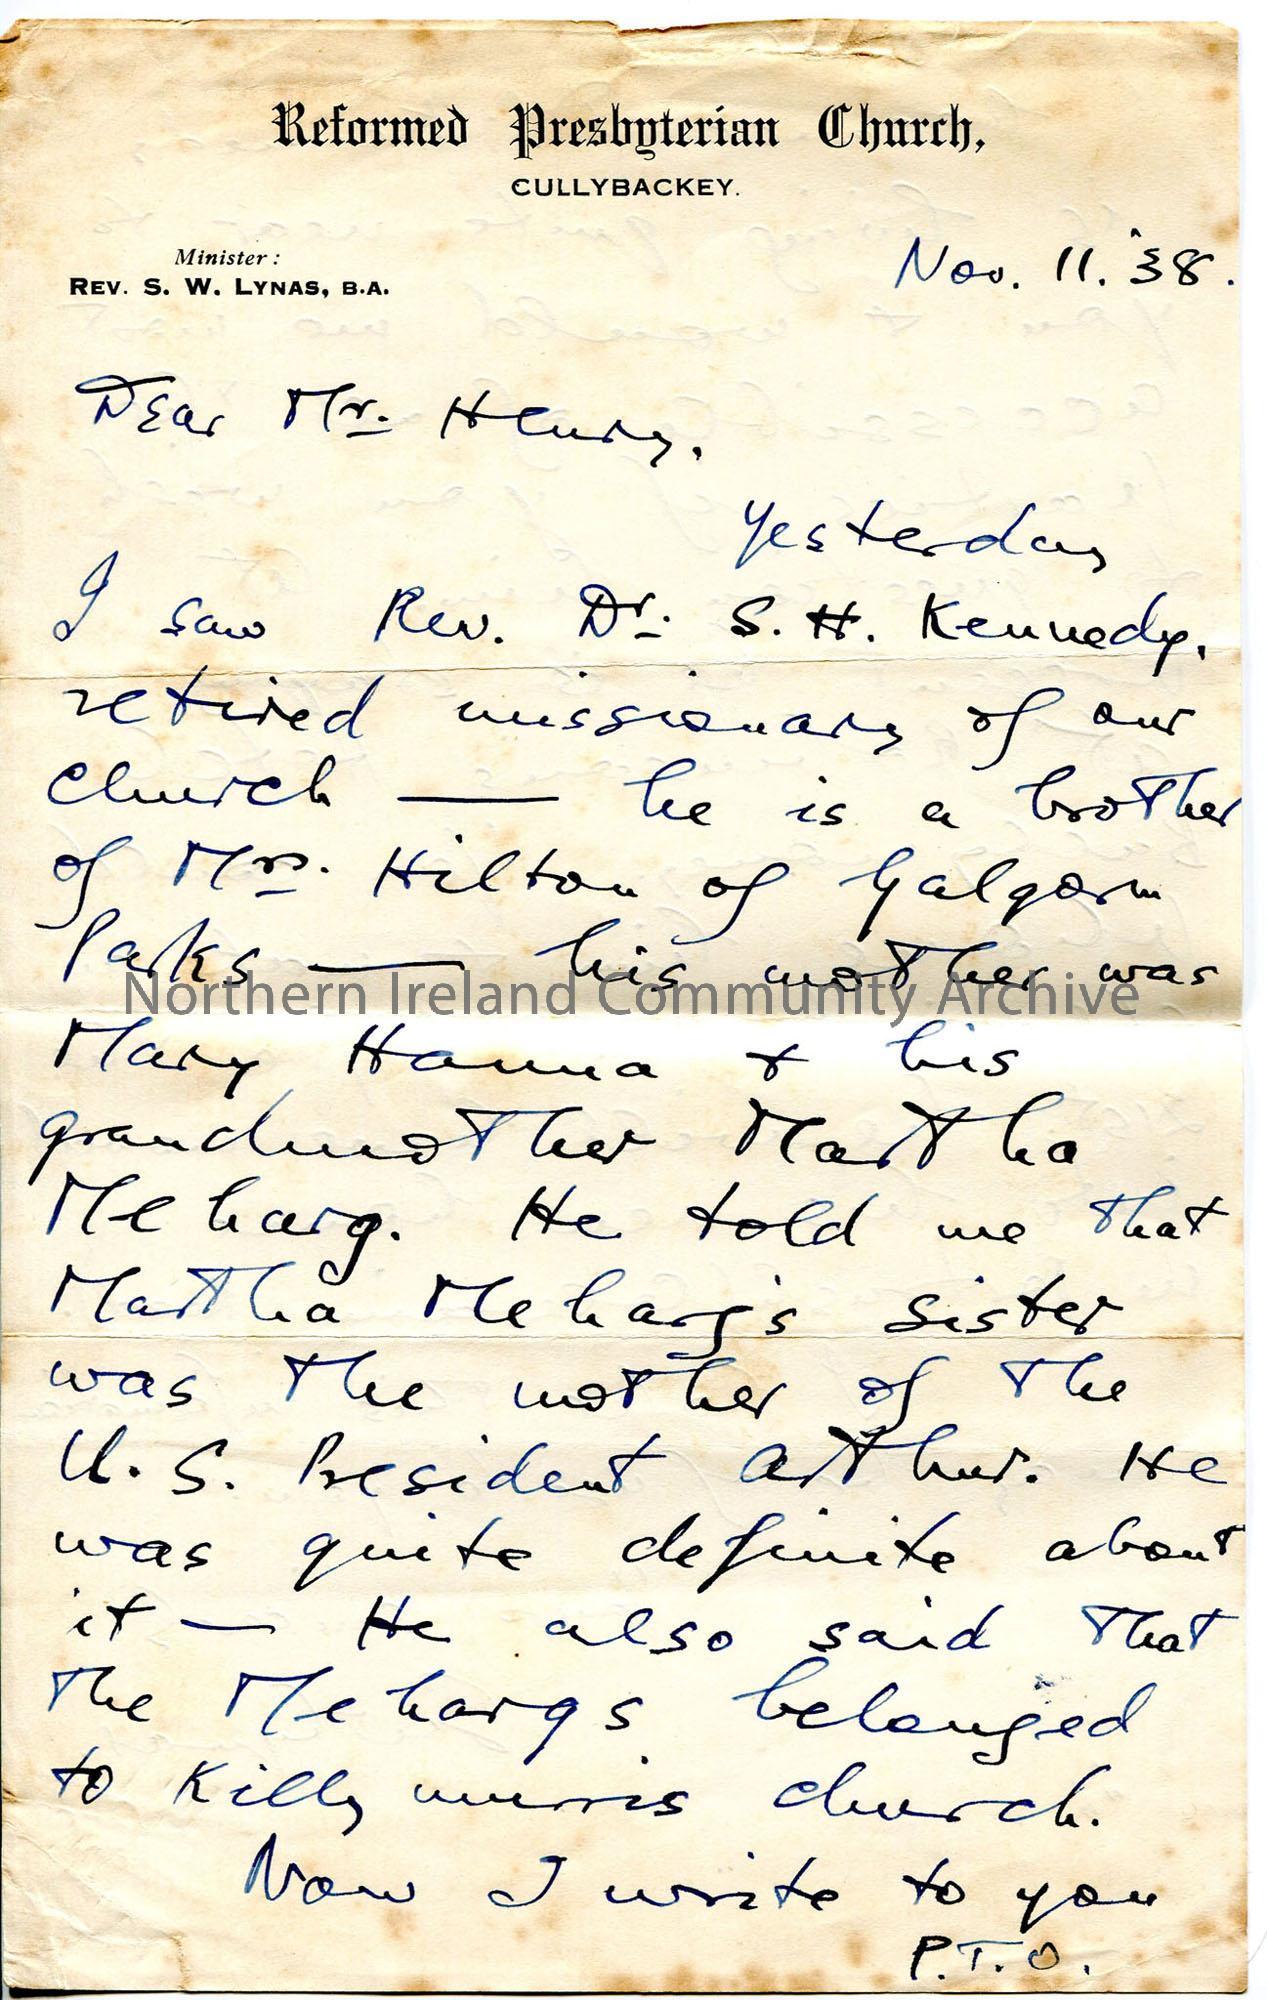 Reformed Presbyterian Church,
CULLYBACKEY.
Minister:
REV. S. W. LYNAS, B.A.
Nov. 11. '38.
Dear Mr. Henry,
Yesterday
I saw Rev. Dr. S. H. Kennedy,
retired missionary of our
church — he is a brother
of Mrs. Hilton of Galgorm
Parks — his mother was
Northern Ireland Community Archive
Mary Hanna + his
grandmother Martha
Meharg. He told me that
Martha Meharg's sister
was the mother of the
U.S. President Arthur. He
was quite definite about
it — He also said that
the Mehargs belonged
to Killymurris church.
Now I write to you
P.T.O.